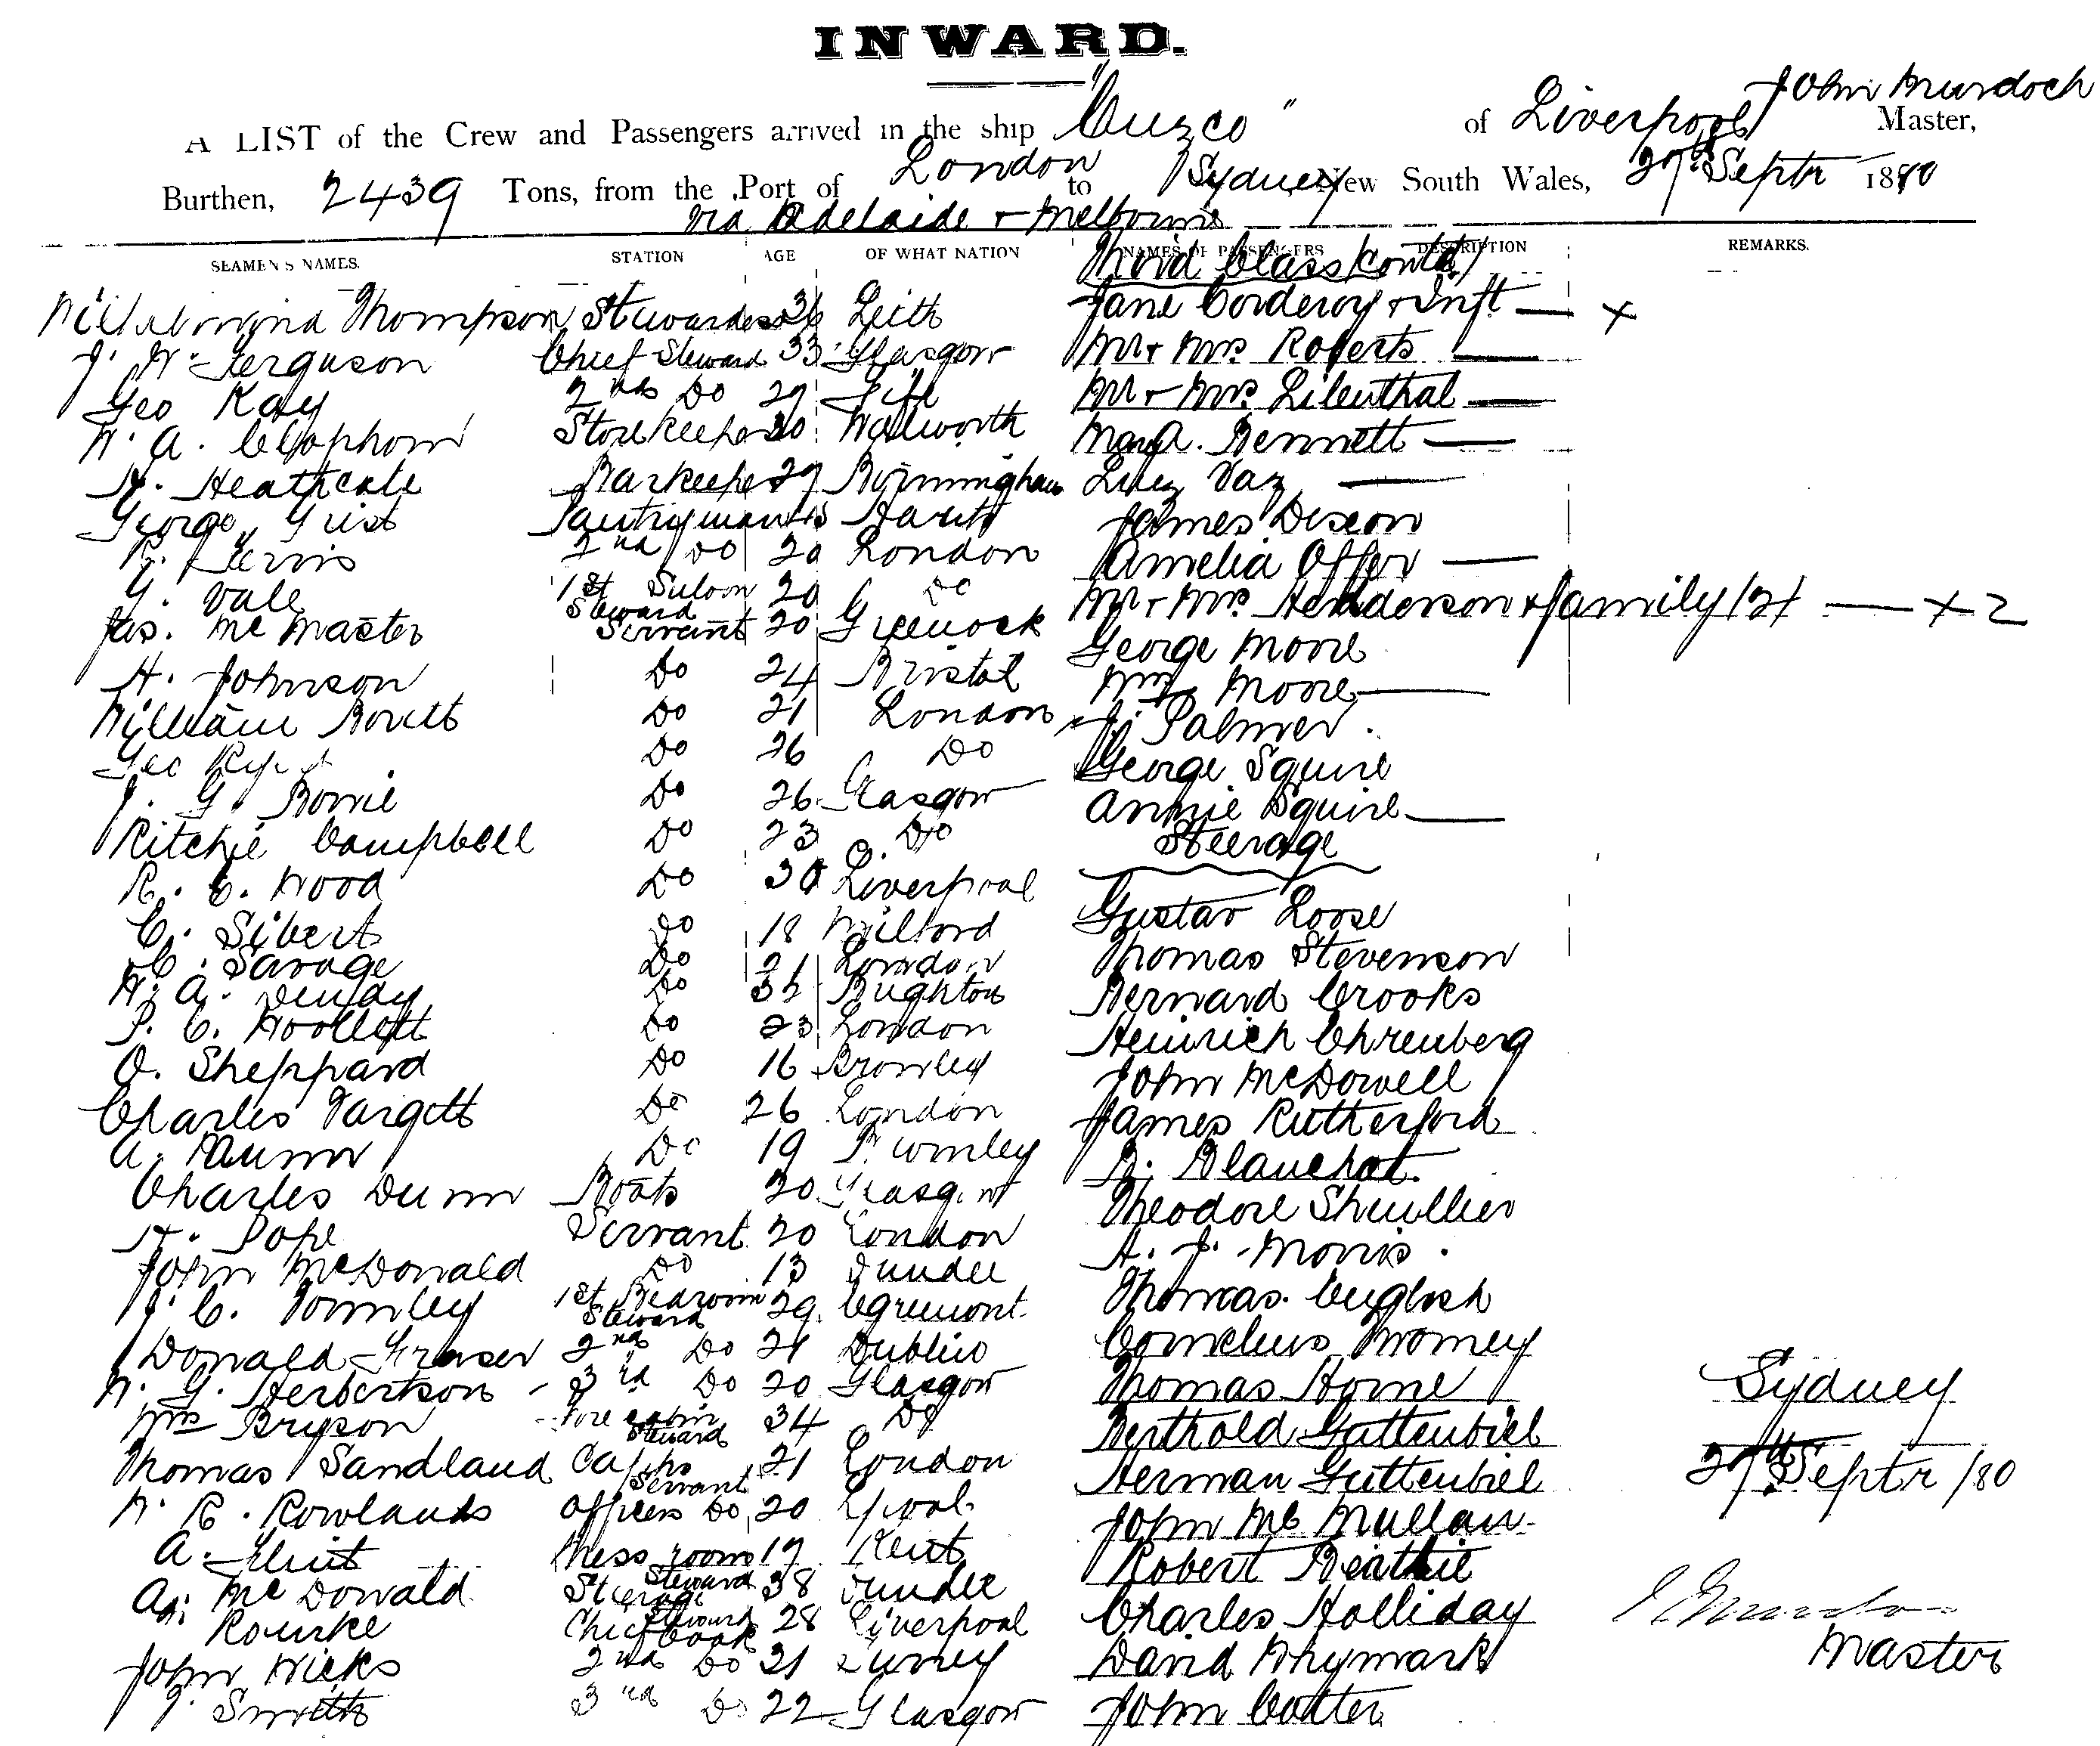 INWARD.
A LIST of the Crew and Passengers arrived in the ship "Cuzco" of Liverpool John Murdoch Master,
Burthen, 2439 Tons, from the Port of London to Sydney New South Wales, 27th Septr 1880
via Adelaide & Melbourne
SEAMEN'S NAMES. STATION AGE OF WHAT NATION NAMES OF PASSENGERS DESCRIPTION REMARKS.
Third Class (contd)
Thompson Stewardess 36 Leith Jane Corderoy & Inft — x
J. W. Ferguson Chief Steward 33 Glasgow Mr & Mrs Roberts —
Geo Kay 2nd Do 29 Fife Mr & Mrs Lilenthal —
W. A. Clapham Storekeeper 30 Walworth Mary A. Bennett —
H. Heathcote Barkeeper 29 Birmingham Luez Vaz —
George Grist Pantryman Harith James Dixon
Jervis 2nd Do 20 London Amelia Offer —
G. Vale 1st Saloon Steward 20 Do Mr & Mrs Henderson & family (2) — x 2
Jas. McMaster Servant 20 Greenock George Moore
H. Johnson Do 24 Bristol Mrs Moore —
William Bovett Do 21 London J. Palmer
Geo Do 26 Do George Squire
J. G. Bowie Do 26 Glasgow Annie Squire —
Ritchie Campbell Do 23 Do Steerage
R. C. Wood Do 30 Liverpool
C. Sibert Do 18 Milford Gustav Loose
C. Savage Do 21 London Thomas Stevenson
W. A. Dendy Do 32 Brighton Bernard Crooks
P. C. Woollett Do 23 London Heinrich Ehrenberg
O. Sheppard Do 16 Bromley John McDowell
Charles Targett Do 26 London James Rutherford
A. Dunn Do 19 Bromley B. Blanchot.
Charles Dunn Boots 20 Glasgow Theodore
H. Pope Servant 20 London A. J. Morris
John McDonald Do 13 Dundee
J. C. Tormley 1st Bedroom Steward 29 Egremont Thomas English
Donald Fraser 2nd Do 21 Dublin Cornelius Twomey
W. G. Herbertson 3rd Do 20 Glasgow Thomas Horne Sydney
Wm Bryson Fore cabin Steward 34 Do Berthold Guttenbiel
Thomas Sandland Capts Servant 21 London Herman Guttenbiel 27th Septr /80
W. R. Rowlands Officers Do 20 Lpool John McMullan
A. Flint Mess room Steward 19 Kent Robert Beattie
A. McDonald Steerage Steward 38 Dundee Charles Holliday J Murdoch
Rourke Chief Cook 28 Liverpool Master
John Wicks 2nd Do 21 Surrey David Whymark
J. Smith 3rd Do 22 Glasgow John Cotter